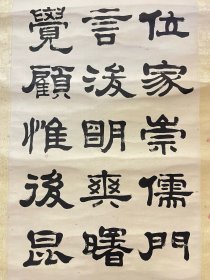 位家崇儒門
言泼明爽曙
覺顧惟後昆